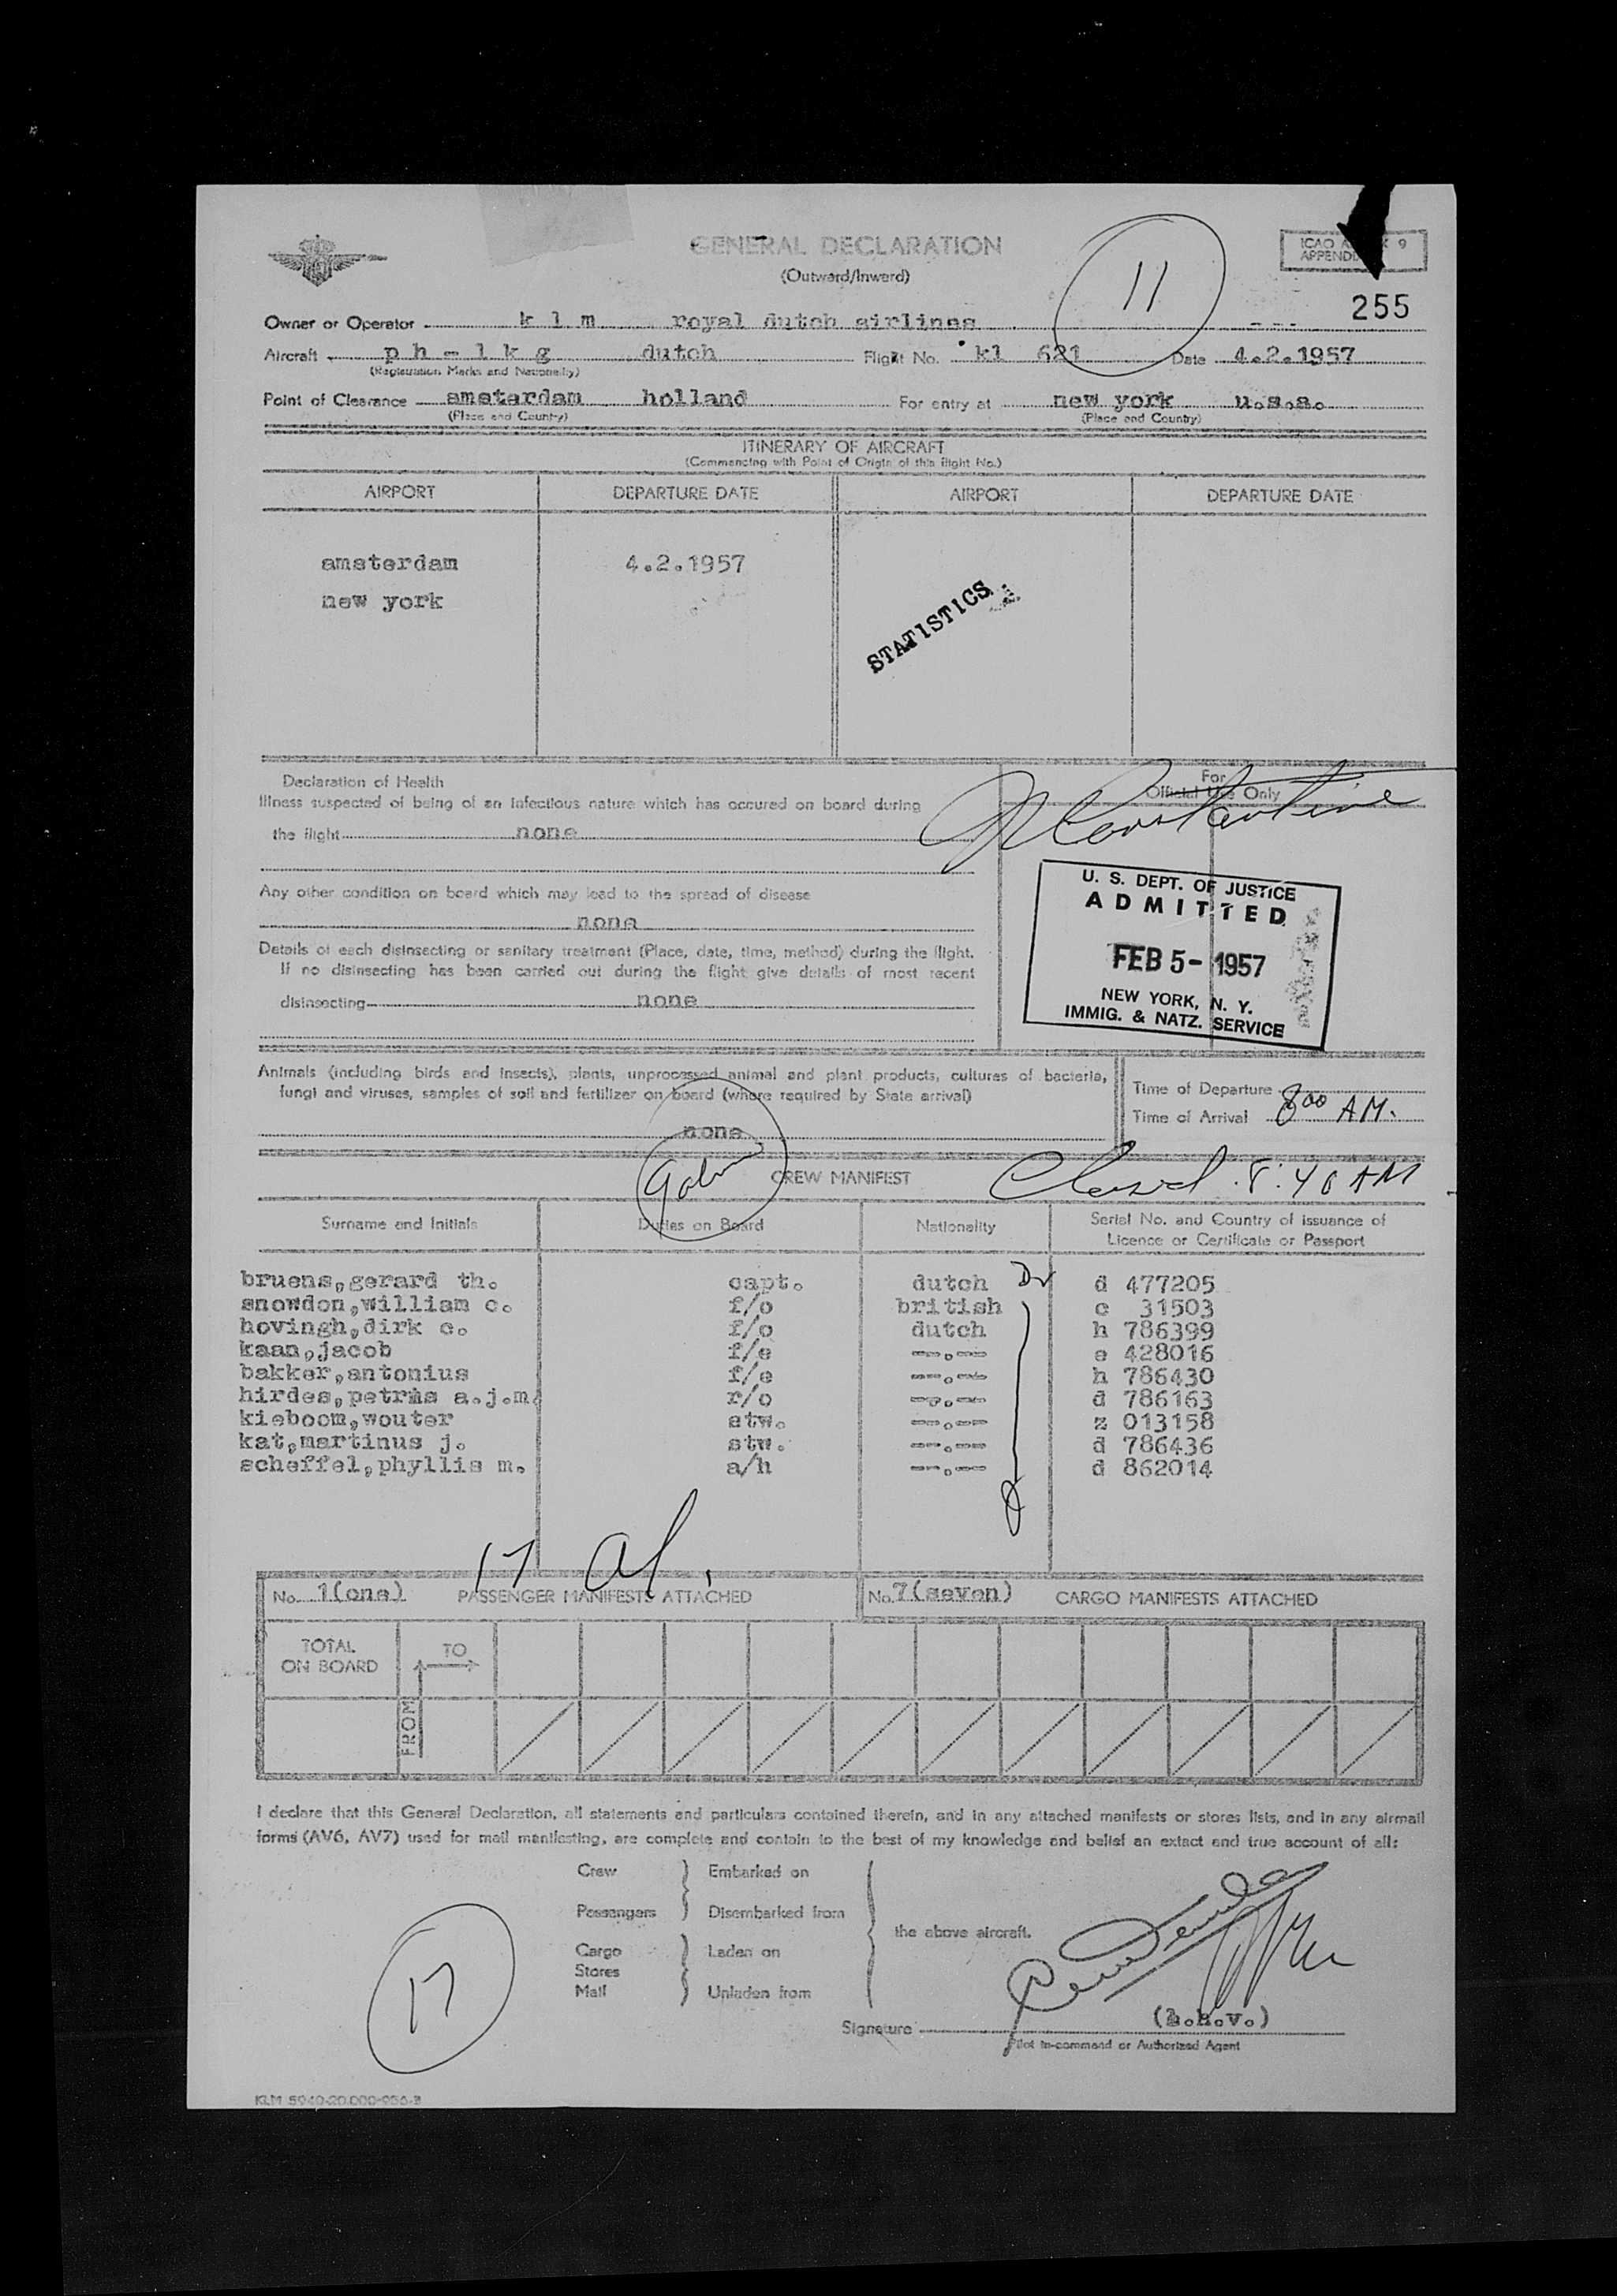 GENERAL DECLARATION
(Outward/Inward)
11
ICAO 9
APPENDI
255
Owner or Operator k l m royal dutch airlines
Aircraft p h - l k g dutch Flight No. kl 621 Date 4.2.1957
(Registration Marks and Nationality)
Point of Clearance amsterdam holland For entry at new york u.s.a.
(Place and Country) (Place and Country)
ITINERARY OF AIRCRAFT
(Commencing with Point of Origin of this flight No.)
AIRPORT DEPARTURE DATE AIRPORT DEPARTURE DATE
amsterdam 4.2.1957
new york
STATISTICS
Declaration of Health
For
Official Use Only
Illness suspected of being of an infectious nature which has occured on board during
the flight none
Constantine
Any other condition on board which may lead to the spread of disease
none
U. S. DEPT. OF JUSTICE
ADMITTED
FEB 5- 1957
NEW YORK, N. Y.
IMMIG. & NATZ. SERVICE
Details of each disinsecting or sanitary treatment (Place, date, time, method) during the flight.
If no disinsecting has been carried out during the flight give details of most recent
disinsecting none
Animals (including birds and insects), plants, unprocessed animal and plant products, cultures of bacteria,
fungi and viruses, samples of soil and fertilizer on board (where required by State arrival)
none
Time of Departure
Time of Arrival 8 00 AM.
CREW MANIFEST
Closed 8:40 AM
Surname and Initials Duties on Board Nationality Serial No. and Country of issuance of
Licence or Certificate or Passport
bruens,gerard th. capt. dutch d 477205
snowdon,william c. f/o british c 31503
hovingh,dirk c. f/o dutch h 786399
kaan,jacob f/e --.-- e 428016
bakker,antonius f/e --.-- h 786430
hirdes,petrus a.j.m. r/o --.-- d 786163
kieboom,wouter stw. --.-- z 013158
kat,martinus j. stw. --.-- d 786436
scheffel,phyllis m. a/h --.-- d 862014
17 al.
No. 1(one) PASSENGER MANIFESTS ATTACHED No. 7(seven) CARGO MANIFESTS ATTACHED
TOTAL
ON BOARD
TO
FROM
I declare that this General Declaration, all statements and particulars contained therein, and in any attached manifests or stores lists, and in any airmail
forms (AV6, AV7) used for mail manifesting, are complete and contain to the best of my knowledge and belief an extact and true account of all:
Crew Embarked on
Passengers Disembarked from
the above aircraft.
Cargo Laden on
Stores
Mail Unladen from
17
Signature (b.h.v.)
Pilot in-command or Authorized Agent